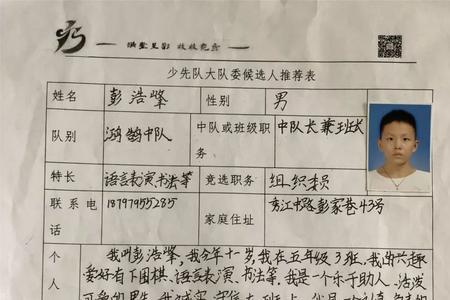 少先队大队委候选人推荐表
姓名 彭浩峰 性别 男
队别 鸿鹄中队 中队或班级职务 中队长兼班长
特长 语言表演书法等 竞选职务 组织委员
联系电话 18797955285 家庭住址 秀江中路彭家巷43号
个人
我叫彭浩峰,我今年十一岁,我在五年级3班,我的兴趣
爱好有下围棋、语言表演、书法等,我是一个乐于助人、活泼